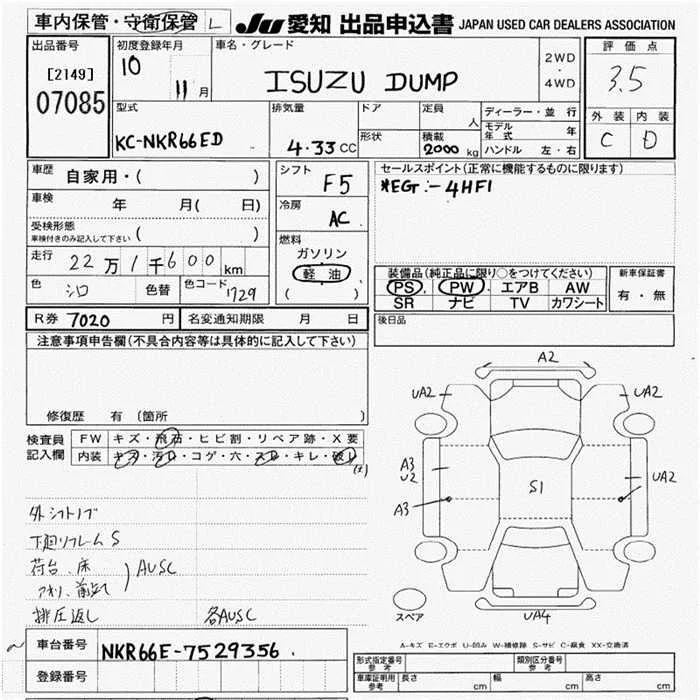 車内保管・守衛保管 L
JU 愛知 出品申込書 JAPAN USED CAR DEALERS ASSOCIATION
出品番号
[2149]
07085
初度登録年月
10
11 月
車名・グレード
ISUZU DUMP
2WD
・
4WD
評価点
3.5
外装 内装
C D
型式
KC-NKR66ED
排気量
4.33 CC
ドア
形状
定員
人
積載
2000 kg
ディーラー・並行
モデル年式 年
ハンドル 左・右
車歴 自家用・( )
車検 年 月( 日)
受検形態
車検付きのみ記入して下さい ( )
走行 22万1千600 km
色 シロ 色替 色コード 1729
シフト
F5
冷房
AC
燃料
ガソリン
軽油
( )
セールスポイント(正常に機能するものに限ります)
*EG:-4HF1
装備品(純正品に限り○をつけてください)
PS. PW. エアB AW
SR ナビ TV カワシート
新車保証書
有・無
R券 7020 円 名変通知期限 月 日
後日品
注意事項申告欄(不具合内容等は具体的に記入して下さい)
修復歴 有 (箇所 )
検査員
記入欄
FW キズ・飛石・ヒビ割・リペア跡・X要
内装 キズ・汚レ・コゲ・穴・スレ・キレ・破レ
外シフトノブ
下廻リフレームS
荷台、床
AUSC
排圧返し 各AUSC
A2
UA2 UA2
A3
U2
A3
S1
UA2
UA4
スペア
A-キズ E-エクボ U-凹み W-補修跡 S-サビ C-腐食 XX-交換済
車台番号 NKR66E-7529356
登録番号
型式指定番号
参考
類別区分番号
参考
車庫証明用
参考
長さ cm 幅 cm 高さ cm